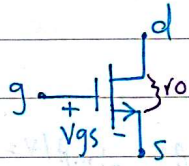 d
g
ro
+
Vgs -
s